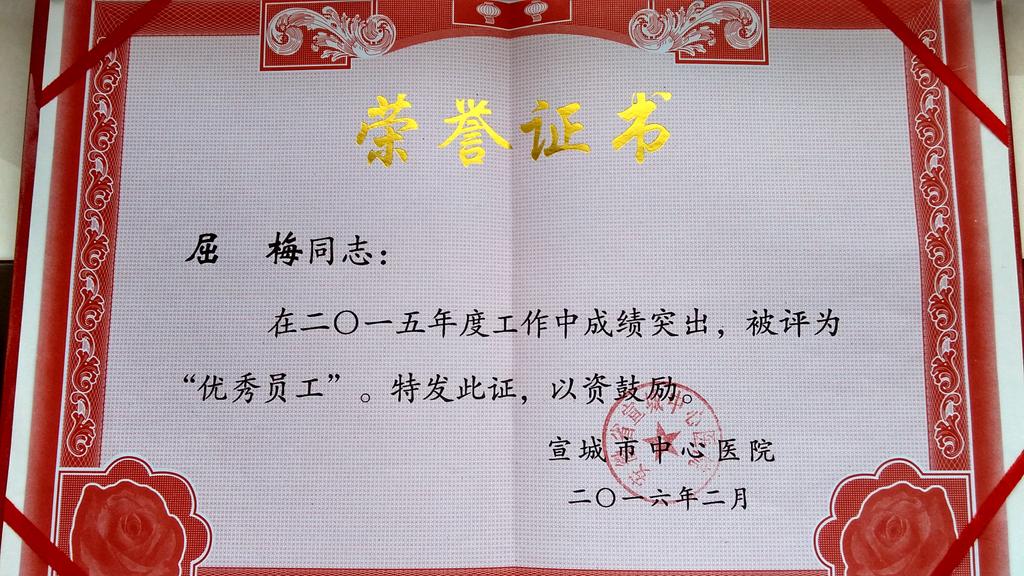 荣誉证书
屈 梅同志：
在二〇一五年度工作中成绩突出，被评为
“优秀员工”。特发此证，以资鼓励。
安徽省宣城中心医院
宣城市中心医院
二〇一六年二月